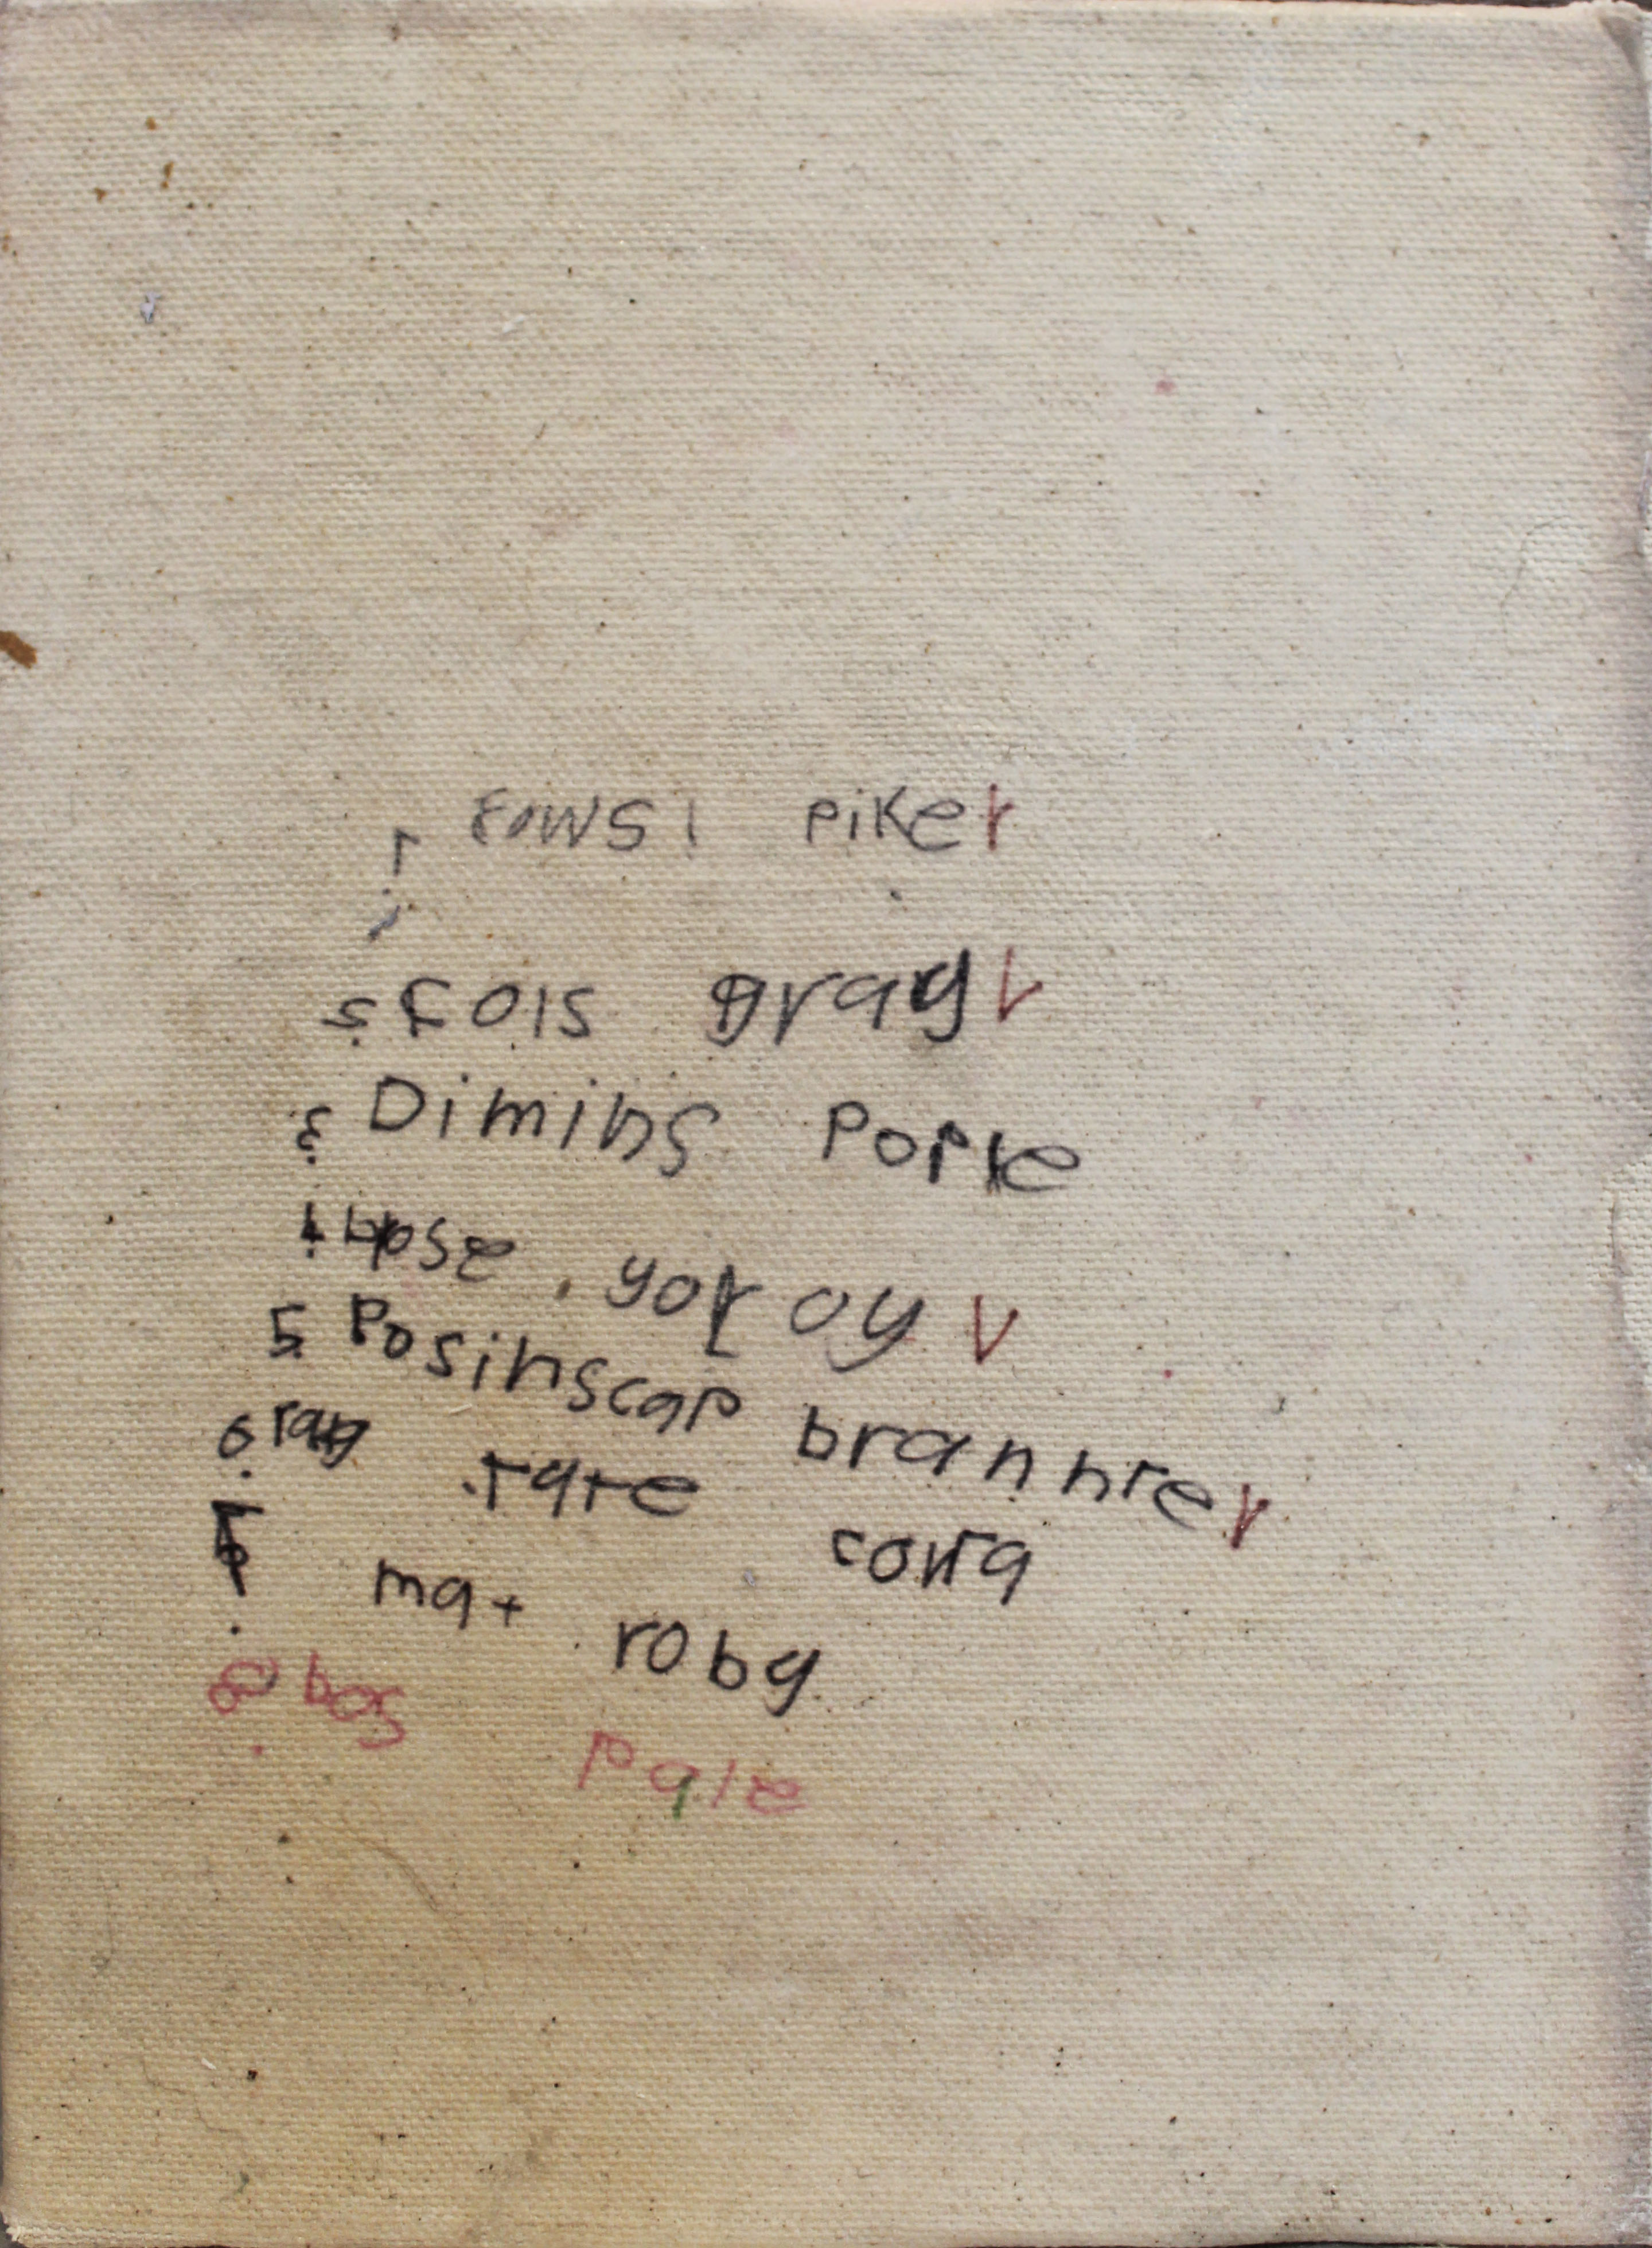 1. fowsi piker
2. fois gragv
3. Dimins Porke
4. hose yor oy v
5. Posinscap brannrer
6. rare cora
7. mat roby
8. bos pale